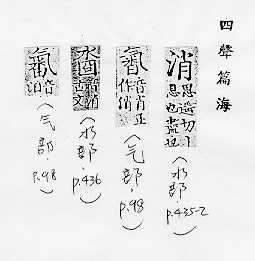 四聲篇海
消 思遙切 思也盡也
(水部.p.435-2)
音肖正作消
(气部.p.98)
音消古文
(水部.p.436)
音泊
(气部.p.98)